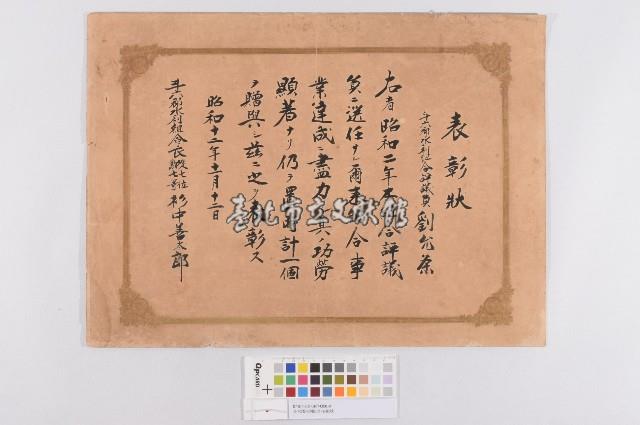 表彰狀
水利組合評議員 劉
右者昭和二年本組合評議
員ニ選任サレ爾來組合事
業達成ニ盡力シ其ノ功勞
顯著ナリ仍テ置時計一個
ヲ贈與シ茲ニ之ヲ表彰ス
昭和十二年十二月十二日
水利組合長 從七位勳七等 杉中善太郎
臺北市立文獻館